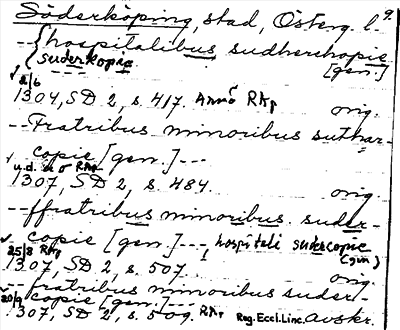 Söderköping, stad, Österg. l. 9.
-- hospitalibus sudherchopie
suderkopie [gen.]
2/6
1304, SD 2, s. 417. Anno RAp orig.
-- Fratribus minoribus suthær-
copie [gen.] ---
u.d. u o RAp
1307, SD 2, s. 484. orig.
-- ffratribus minoribus suder-
copie [gen.] ---, hospitali sudercopie (gen)
25/8 RAp
1307, SD 2, s. 507. orig.
-- fratribus minoribus suder-
20/9 copie [gen.] ---
1307, SD 2, s. 509. RAp Reg. Eccl. Linc. avskr.